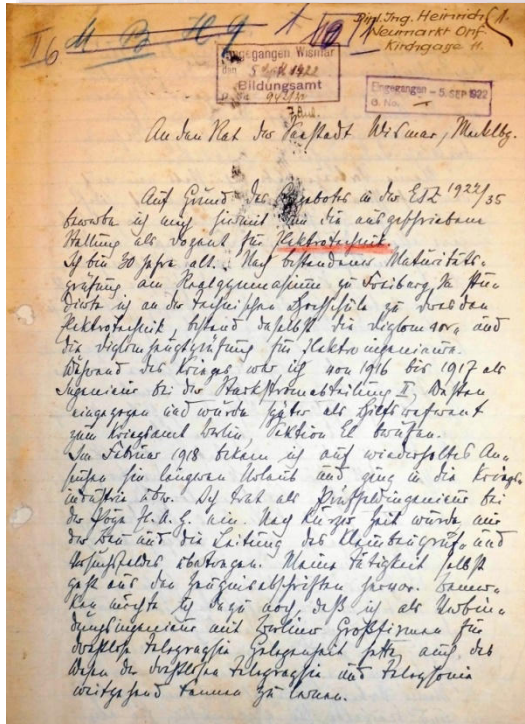 Dipl. Ing. Heinrich
Neumarkt Opf.
Kirchgasse 11.
II 6
Eingegangen Wismar
den 5. Sept. 1922
Bildungsamt
Eingegangen - 5. SEP 1922
G. No.
An den Rat der Seestadt Wismar, Mecklbg.
Auf Grund des Angebotes in der ETZ 1922/35
bewerbe ich mich hiermit um die ausgeschriebene
Stellung als Dozent für Elektrotechnik.
Ich bin 30 Jahre alt. Nach bestandener Maturitäts-
prüfung am Realgymnasium zu Freiberg Sa. stu-
dierte ich an der technischen Hochschule zu Dresden
Elektrotechnik, bestand daselbst die Diplomvor- und
die Diplomhauptprüfung für Elektroingenieure.
Während des Krieges war ich von 1916 bis 1917 als
Ingenieur bei der Starkstromabteilung II, Westen
eingezogen und wurde später als Hilfsreferent
zum Kriegsamt Berlin, Sektion El berufen.
Im Februar 1918 bekam ich auf wiederholtes An-
suchen hin längeren Urlaub und ging in die Kriegs-
industrie über. Ich trat als Prüffeldingenieur bei
der Pöge E. A. G. ein. Nach kurzer Zeit wurde mir
der Bau und die Leitung des und
Versuchsfeldes übertragen. Meine Tätigkeit selbst
geht aus den Zeugnisabschriften hervor. Bemer-
ken möchte ich dazu noch, daß ich als Verbin-
dungsingenieur mit Berliner Großfirmen für
drahtlose Telegraphie Gelegenheit hatte auch das
Wesen der drahtlosen Telegraphie und Telephonie
weitgehend kennen zu lernen.